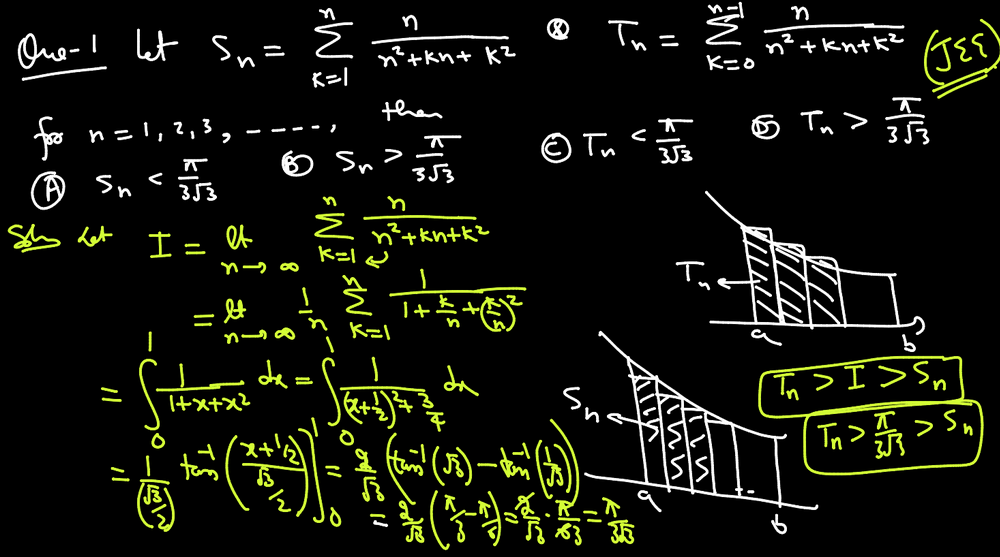 Que-1 Let Sₙ = ∑_{k=1}^{n} n/(n²+kn+k²) & Tₙ = ∑_{k=0}^{n-1} n/(n²+kn+k²) (JEE)
for n = 1, 2, 3, - - - - -, then
Ⓐ Sₙ < π/(3√3) Ⓑ Sₙ > π/(3√3) Ⓒ Tₙ < π/(3√3) Ⓓ Tₙ > π/(3√3)
Soln Let I = lt_{n→∞} ∑_{k=1}^{n} n/(n²+kn+k²)
= lt_{n→∞} 1/n ∑_{k=1}^{n} 1/(1+k/n+(k/n)²)
= ∫_0^1 1/(1+x+x²) dx = ∫_0^1 1/((x+1/2)²+3/4) dx
= 1/(√3/2) tan⁻¹((x+1/2)/(√3/2)]_0^1 = 2/√3 (tan⁻¹(√3) - tan⁻¹(1/√3))
= 2/√3 (π/3 - π/6) = 2/√3 · π/63 = π/(3√3)
Tₙ
a b
Sₙ
a b
Tₙ > I > Sₙ
Tₙ > π/(3√3) > Sₙ